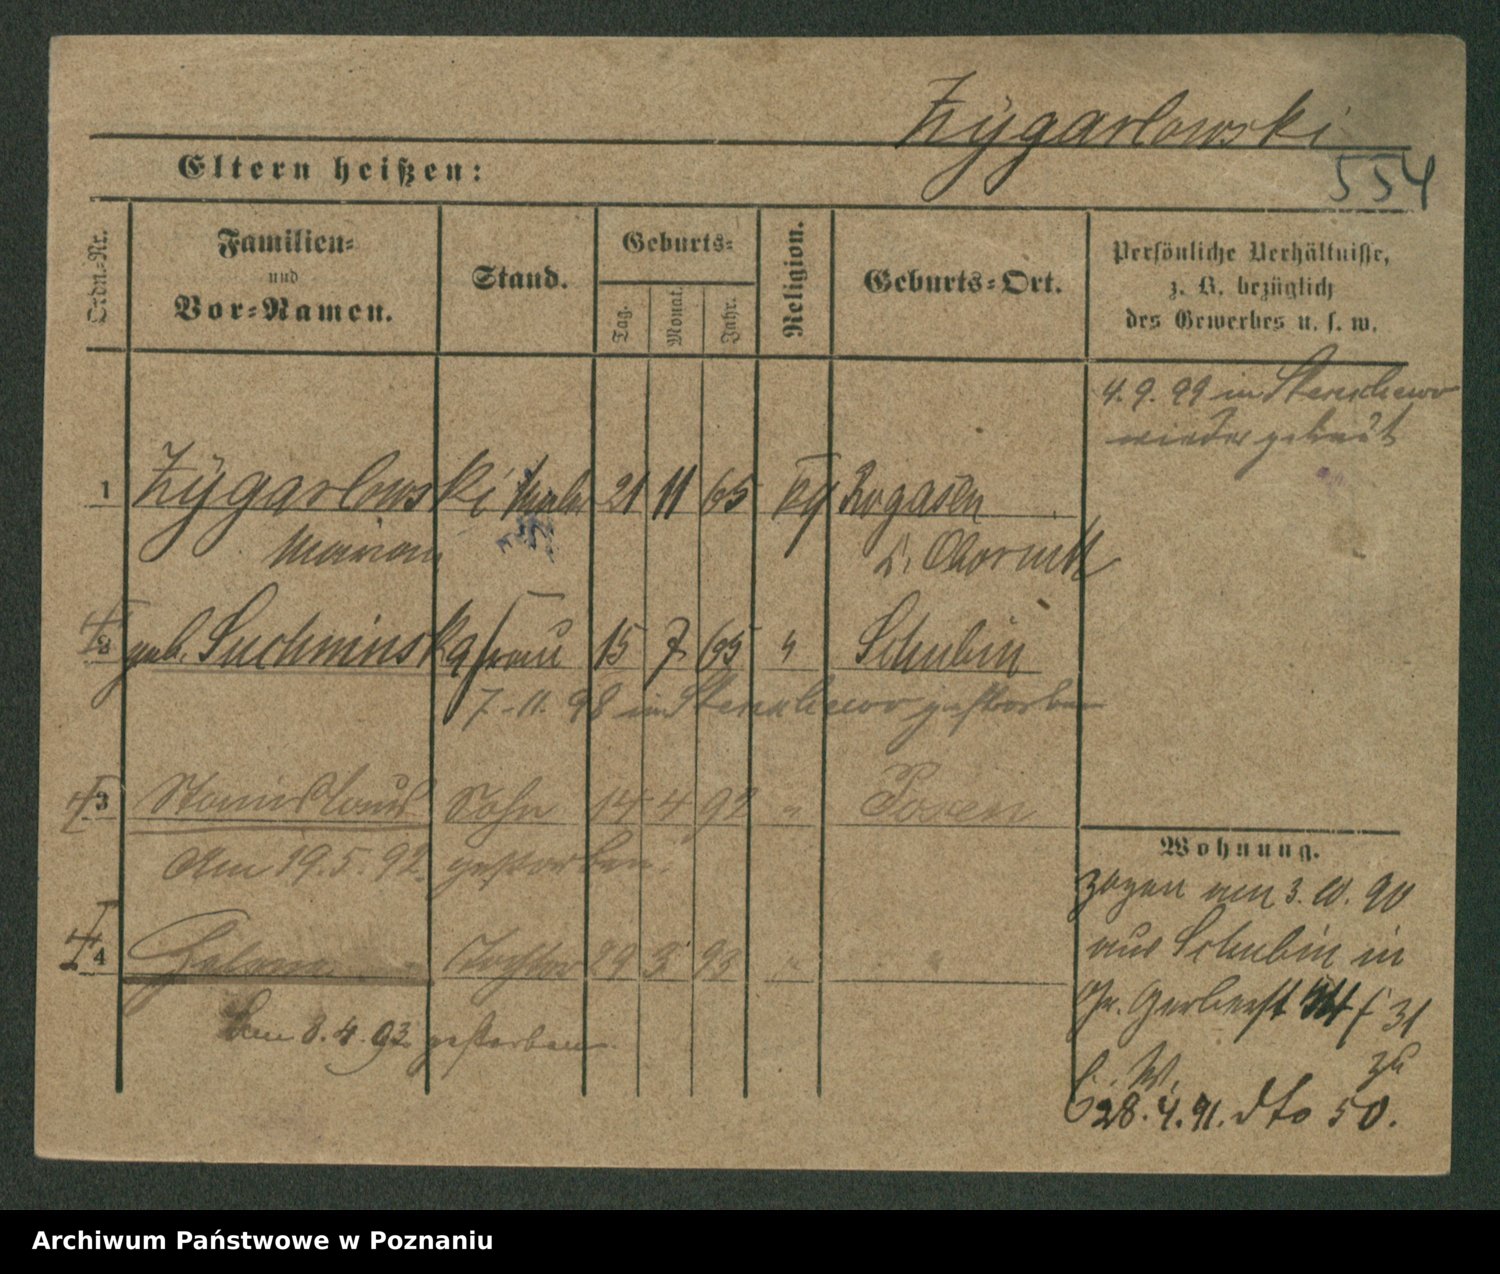 Zygarlowski
554
Eltern heißen:
Ordn.-Nr.
Familien-
und
Vor-Namen.
Stand.
Geburts-
Tag.
Monat.
Jahr.
Religion.
Geburts-Ort.
Persönliche Verhältnisse,
z. B. bezüglich
des Gewerbes u. s. w.
4. 9. 99 in Stenschewo
wieder geheirat
1 Zygarlowski 21 11 65 kg Rogasen
Marian Obornik
2 geb. Suchminska Frau 15 7 65 " Schubin
7. 11. 98 in Stenschewo gestorben
3 Stanislaus Sohn 14 4 92 " Posen
Am 19. 5. 92. gestorben.
4 Tochter 29 3 93 " "
Am 8. 4. 93 gestorben.
Wohnung.
zogen am 3. 10. 90
aus Schubin in
Gr. Gerberst 31
zu
28. 4. 91. dto 50.
Archiwum Państwowe w Poznaniu